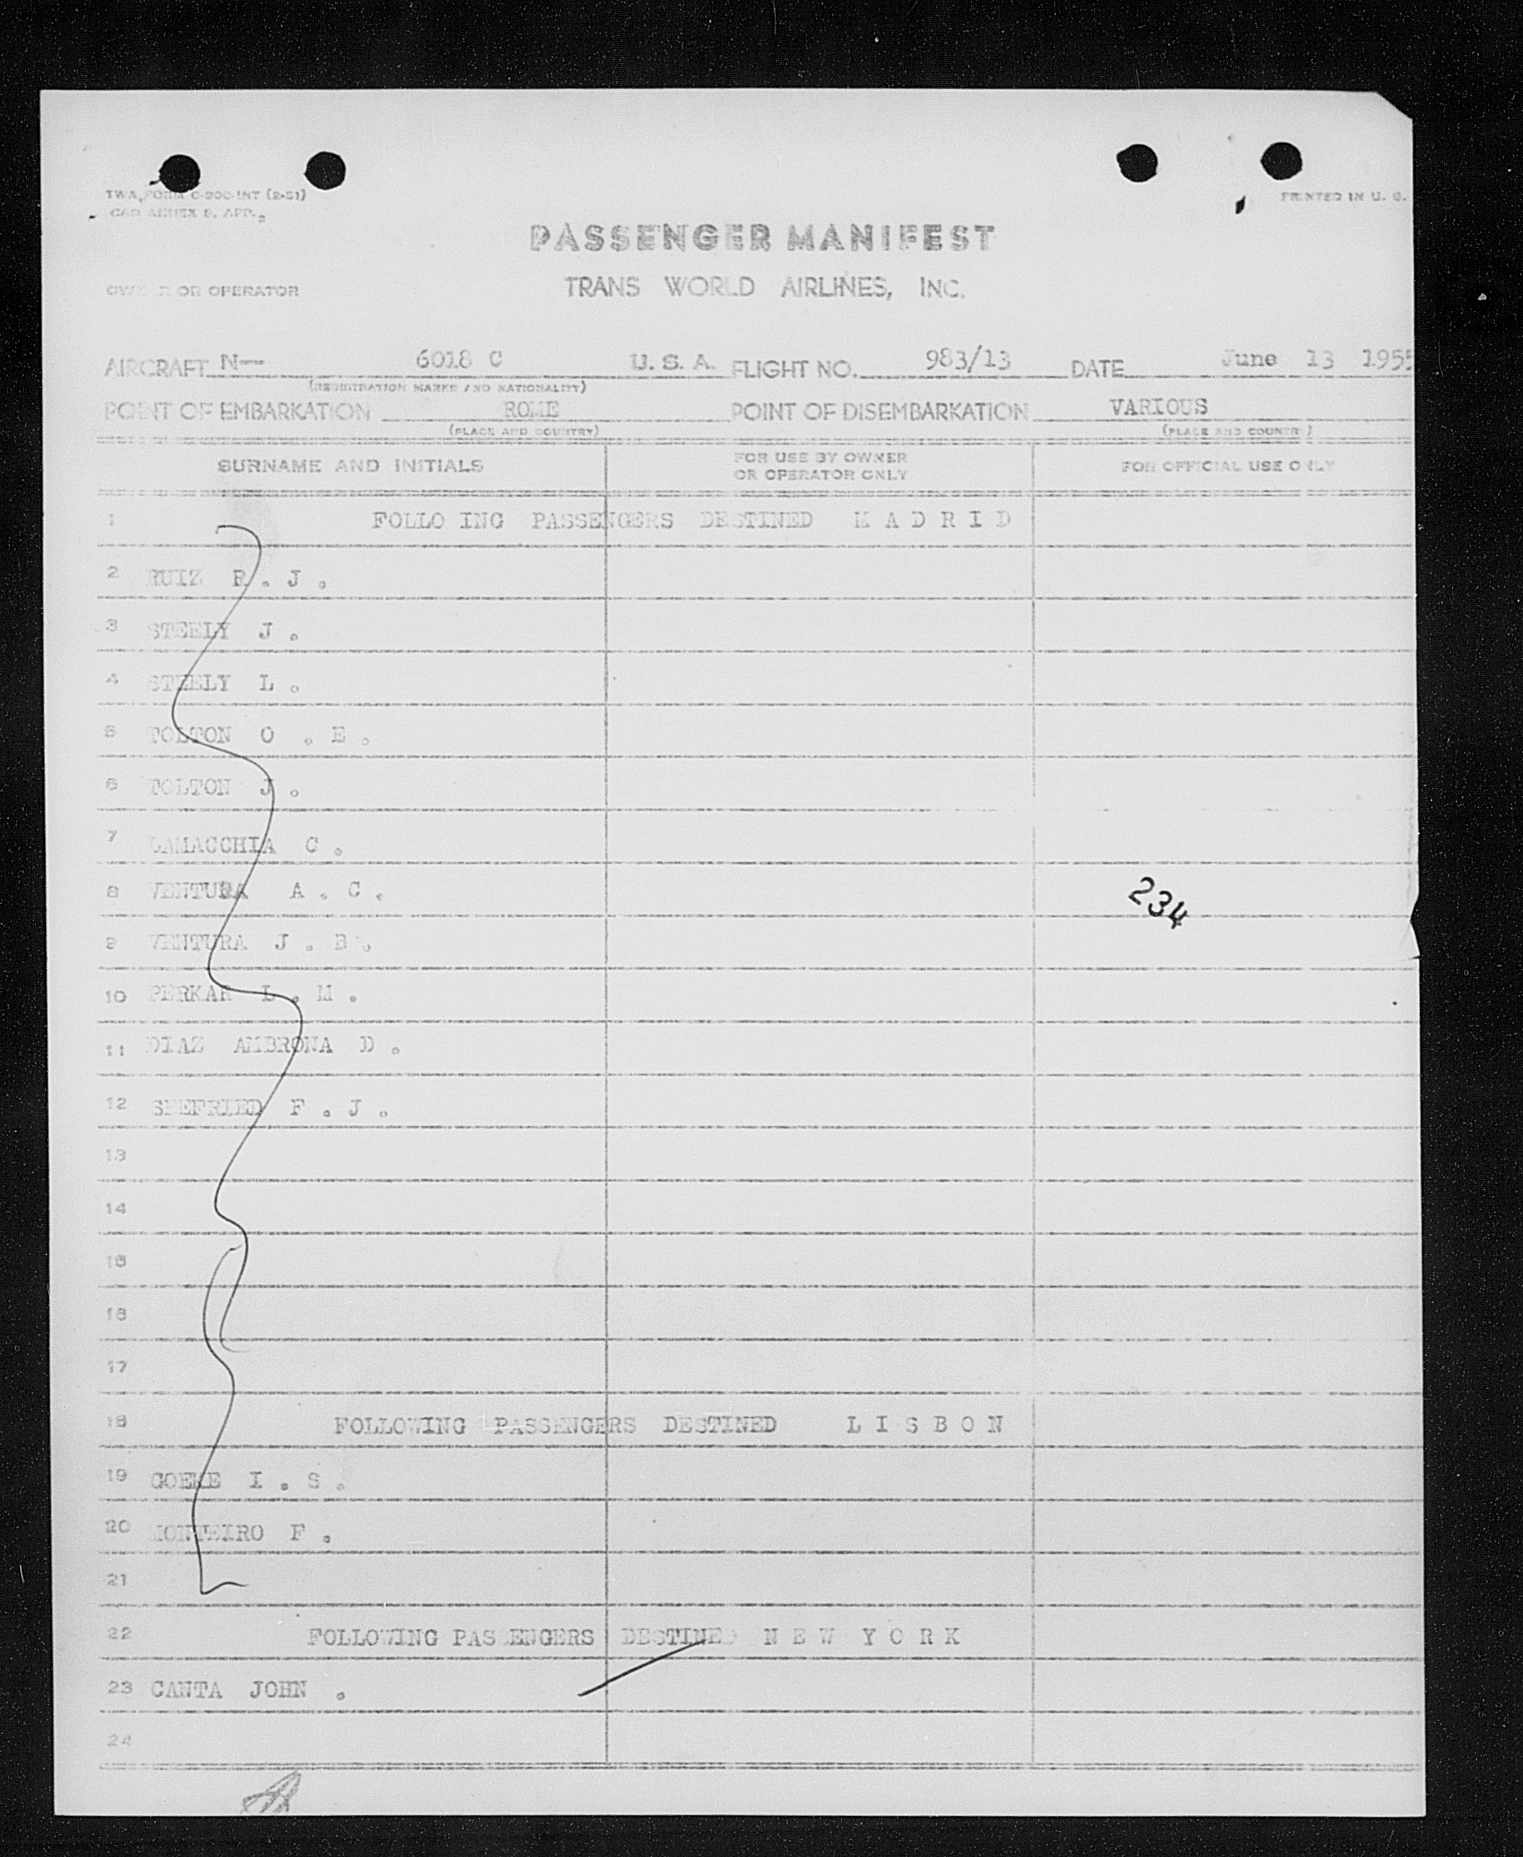 TWA FORM C-900-INT (2-51)
PRINTED IN U. S.
CAB ANNEX 9, APP.
PASSENGER MANIFEST
OWNER OR OPERATOR TRANS WORLD AIRLINES, INC.
AIRCRAFT N— 6018 C U. S. A. FLIGHT NO. 983/13 DATE June 13 1955
(REGISTRATION MARKS AND NATIONALITY)
POINT OF EMBARKATION ROME POINT OF DISEMBARKATION VARIOUS
(PLACE AND COUNTRY) (PLACE AND COUNTRY)
SURNAME AND INITIALS FOR USE BY OWNER OR OPERATOR ONLY FOR OFFICIAL USE ONLY
1 FOLLO ING PASSENGERS DESTINED M A D R I D
2 RUIZ R . J .
3 STEELY J .
4 STEELY L .
5 TOLTON O . E .
6 TOLTON J .
7 LAMACCHIA C .
8 VENTURA A . C . 234
9 VENTURA J . B .
10 PERKAR L . M .
11 DIAZ AMBRONA D .
12 F . J .
13
14
15
16
17
18 FOLLOWING PASSENGERS DESTINED L I S B O N
19 I . S .
20 MONTEIRO F .
21
22 FOLLOWING PASSENGERS DESTINED N E W Y O R K
23 CANTA JOHN .
24